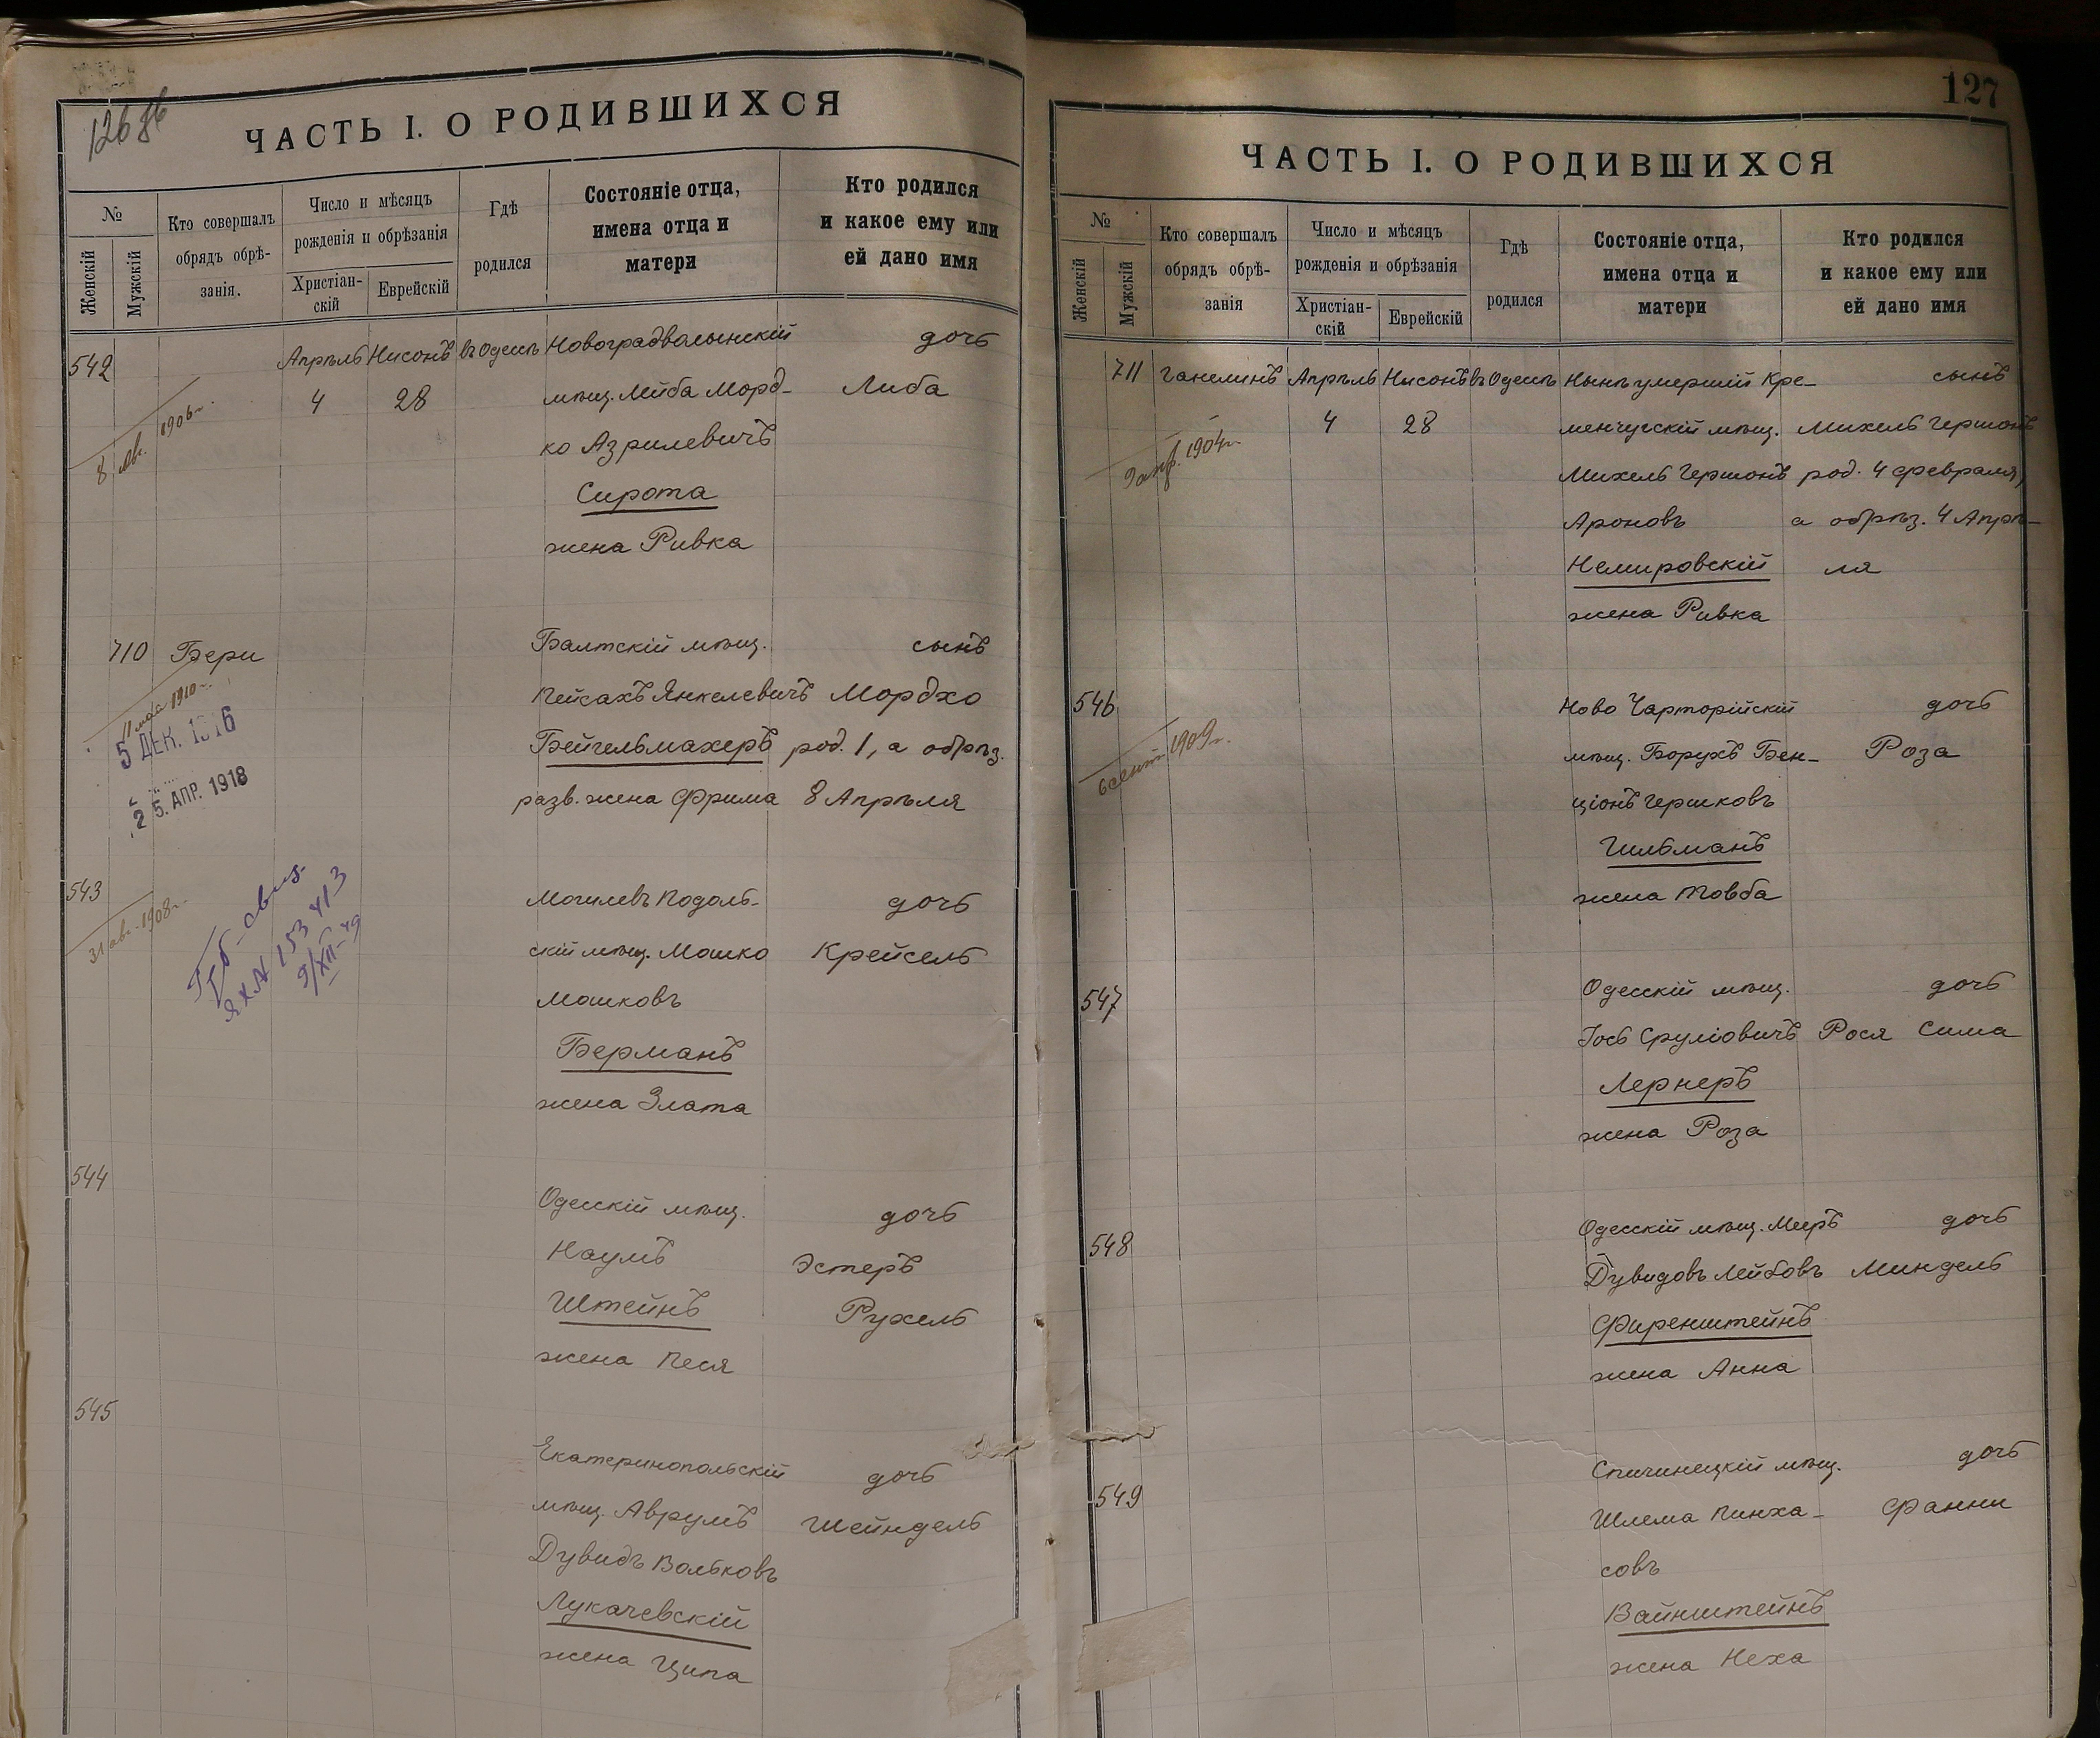 126 об
ЧАСТЬ I. О РОДИВШИХСЯ
№
Женскій
Мужскій
Кто совершалъ
обрядъ обрѣ-
занія.
Число и мѣсяцъ
рожденія и обрѣзанія
Христіан-
скій
Еврейскій
Гдѣ
родился
Состояніе отца,
имена отца и
матери
Кто родился
и какое ему или
ей дано имя
542 Апрѣль Нисонъ въ Одессѣ Новоградволынскій дочь
4 28 мѣщ. Лейба Морд- Либа
8 Янв. 1906 г.
ко Азрилевичъ
Сирота
жена Ривка
710 Бери Балтскій мѣщ. сынъ
11 мая 1910 г.
Пейсахъ Янкелевичъ Мордхо
5 ДЕК. 1916
Бейгельмахеръ род. 1, а обрѣз.
25. АПР. 1918
разв. жена Фрима 8 Апрѣля
543 Могилевъ Подоль- дочь
31 авг. 1908 г.
скій мѣщ. Мошко Крейсель
9/XII-49
Мошковъ
Берманъ
жена Злата
544 Одесскій мѣщ. дочь
Наумъ Эстеръ
Штейнъ Рухель
жена Песя
545 Екатеринопольскій дочь
мѣщ. Аврумъ Шейндель
Дувидъ Вольковъ
Лукачевскій
жена Ципа
127
ЧАСТЬ I. О РОДИВШИХСЯ
№
Женскій
Мужскій
Кто совершалъ
обрядъ обрѣ-
занія
Число и мѣсяцъ
рожденія и обрѣзанія
Христіан-
скій
Еврейскій
Гдѣ
родился
Состояніе отца,
имена отца и
матери
Кто родился
и какое ему или
ей дано имя
711 Ганелинъ Апрѣль Нисонъ въ Одессѣ Нынѣ умершій Кре- сынъ
4 28 менчугскій мѣщ. Михель Гершонъ
9 апр. 1904 г.
Михель Гершонъ род. 4 февраля,
Ароновъ а обрѣз. 4 Апрѣ-
Немировскій ля
жена Ривка
546 Ново Чарторійскій дочь
6 сент. 1909 г.
мѣщ. Борухъ Бен- Роза
ціонъ Гершковъ
Гильманъ
жена Товба
547 Одесскій мѣщ. дочь
Іось Сруліовичъ Рося Сима
Лернеръ
жена Роза
548 Одесскій мѣщ. Мееръ дочь
Дувидовъ Лейбовъ Миндель
Фиренштейнъ
жена Анна
549 Спичинецкій мѣщ. дочь
Шлема Пинха- Фанни
совъ
Вайнштейнъ
жена Неха